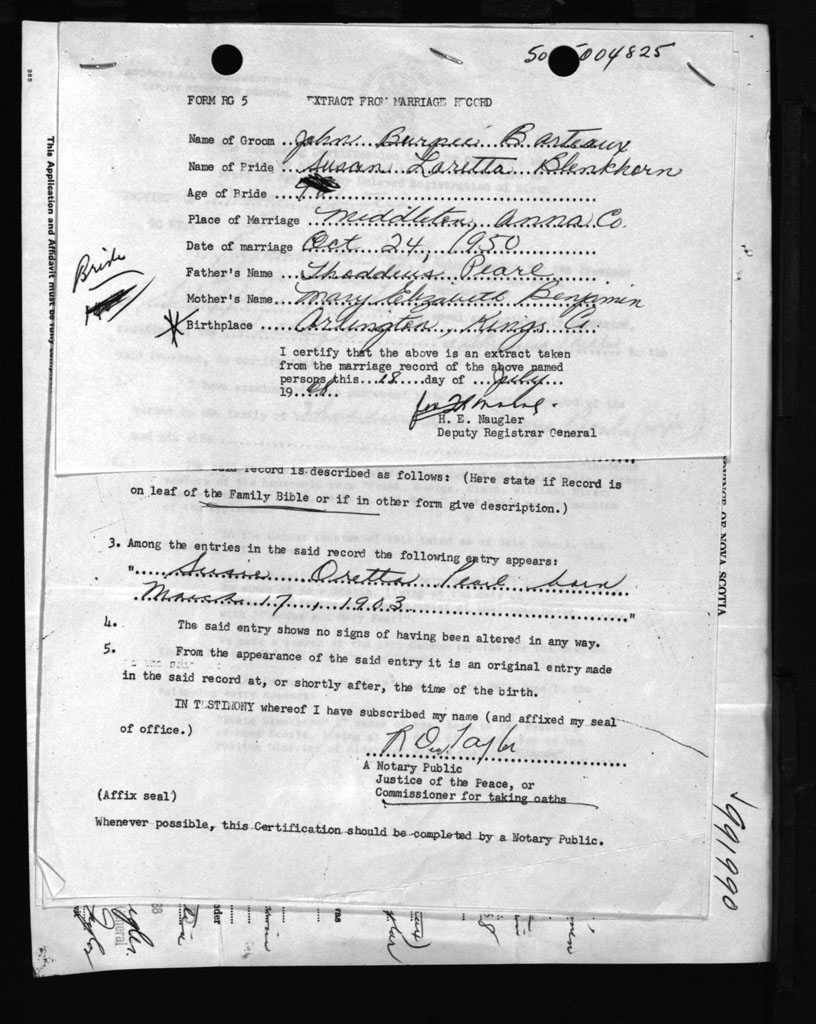 004825
FORM RG 5 EXTRACT FROM MARRIAGE RECORD
Name of Groom ..John Burpee Barteaux
Name of Bride ..Susan Laretta Blenkhorn
Age of Bride
Place of Marriage Middleton, Anna. Co.
Date of marriage Oct 24, 1950
Father's Name ..Thaddeus Pearl
Mother's Name..Mary Elizabeth Benjamin
Birthplace ....Arlington, Kings Co.
Bride
I certify that the above is an extract taken
from the marriage record of the above named
persons this..18..day of ..July...
19..68..
H. E. Naugler
Deputy Registrar General
This Application and Affidavit must be
said record is described as follows: (Here state if Record is
on leaf of the Family Bible or if in other form give description.)
PROVINCE OF NOVA SCOTIA
3. Among the entries in the said record the following entry appears:
"....Susie Oretta Pearl born
March 17, 1903................"
4. The said entry shows no signs of having been altered in any way.
5. From the appearance of the said entry it is an original entry made
in the said record at, or shortly after, the time of the birth.
IN TESTIMONY whereof I have subscribed my name (and affixed my seal
of office.)
A Notary Public
Justice of the Peace, or
Commissioner for taking oaths
(Affix seal)
Whenever possible, this Certification should be completed by a Notary Public.
1991990